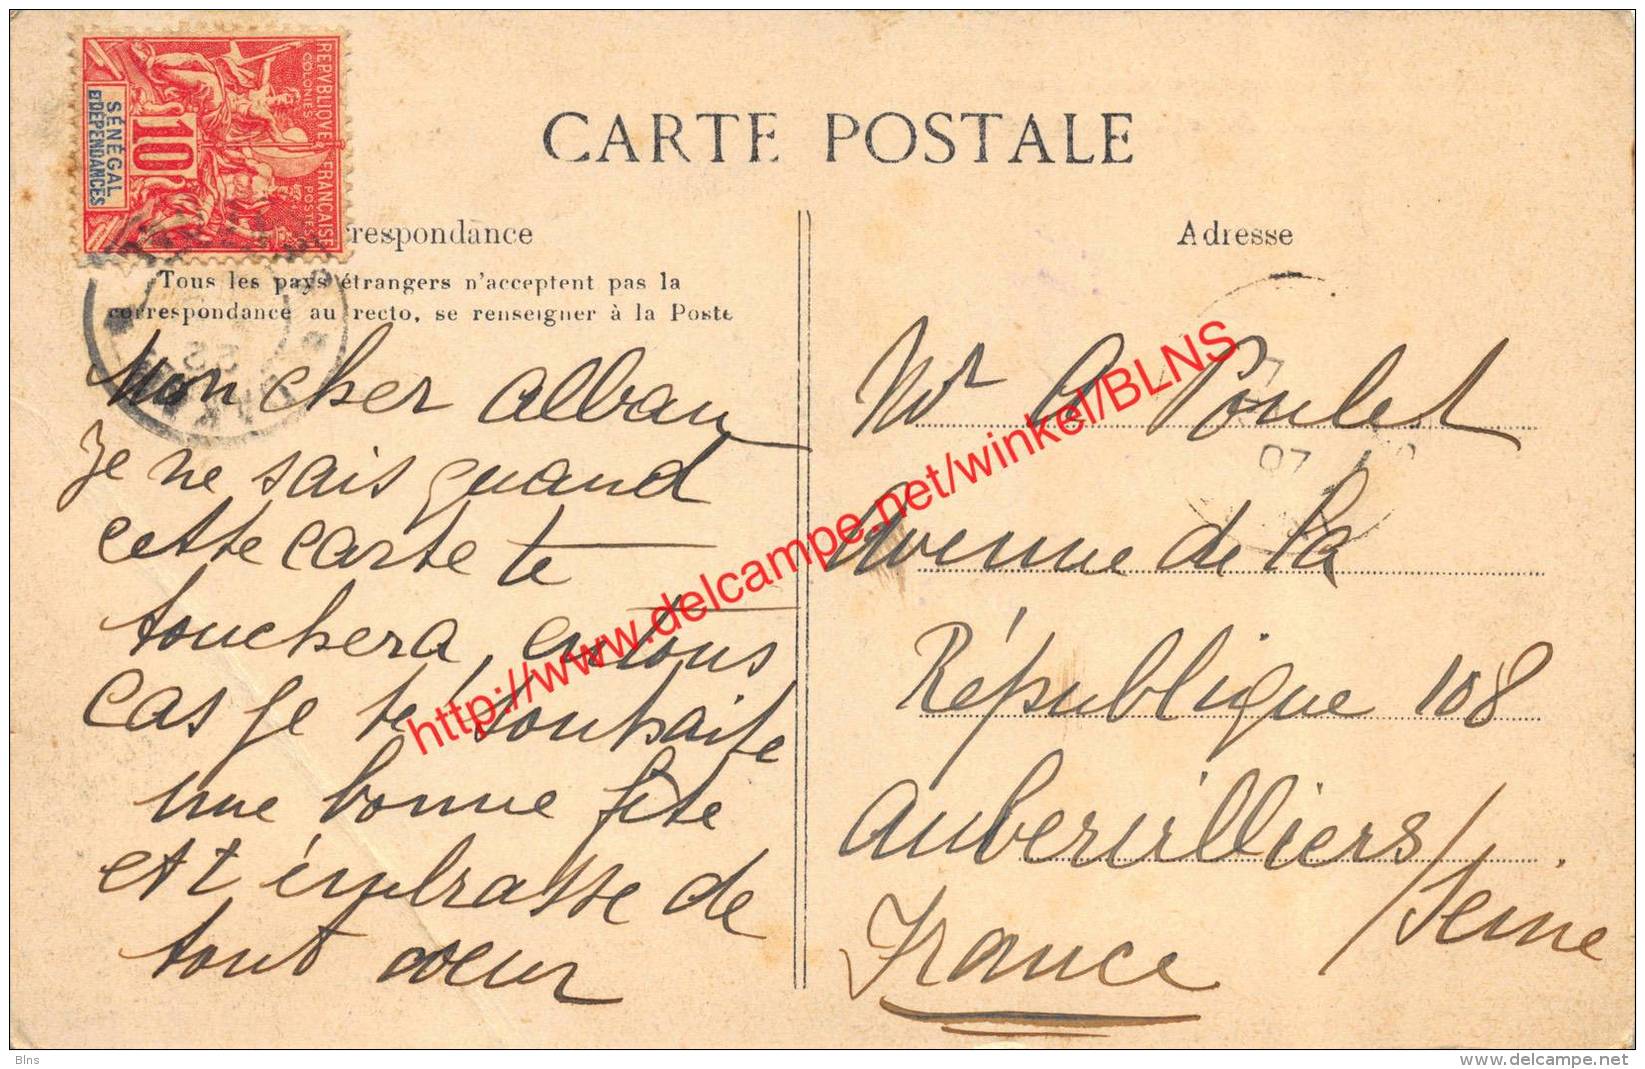 CARTE POSTALE
REPVBLIQVE FRANÇAISE
COLONIES POSTES
10
SÉNÉGAL
ET DÉPENDANCES
respondance
Tous les pays étrangers n'acceptent pas la
correspondance au recto, se renseigner à la Poste
Mon cher Alban
Je ne sais quand
cette carte te
touchera, en tous
cas je te souhaite
une bonne fête
et t'embrasse de
tout coeur
Adresse
Mr A Poulet
Avenue de la
République 108
Aubervilliers/Seine
France
07
http://www.delcampe.net/winkel/BLNS
Blns
www.delcampe.net